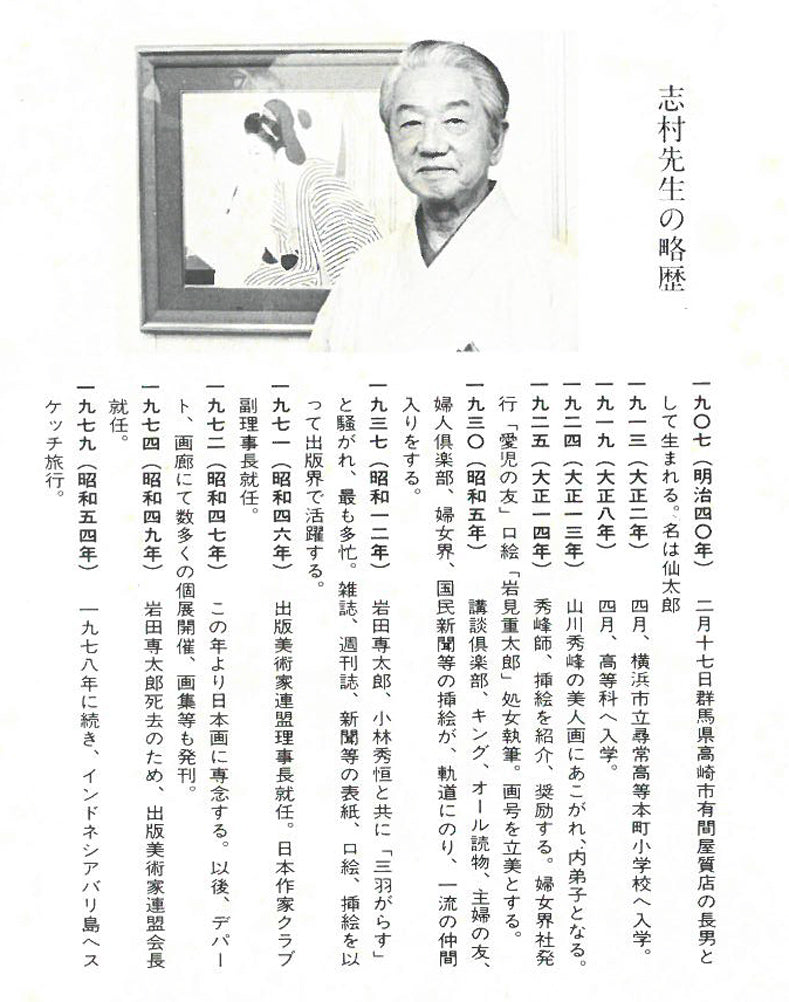 志村先生の略歴
一九〇七（明治四〇年）　二月十七日群馬県高崎市有間屋質店の長男と
して生まれる。名は仙太郎
一九一三（大正二年）　四月、横浜市立尋常高等本町小学校へ入学。
一九一九（大正八年）　四月、高等科へ入学。
一九二四（大正一三年）　山川秀峰の美人画にあこがれ、内弟子となる。
一九二五（大正一四年）　秀峰師、挿絵を紹介、奨励する。婦女界社発
行「愛児の友」口絵「岩見重太郎」処女執筆。画号を立美とする。
一九三〇（昭和五年）　講談倶楽部、キング、オール読物、主婦の友、
婦人倶楽部、婦女界、国民新聞等の挿絵が、軌道にのり、一流の仲間
入りをする。
一九三七（昭和一二年）　岩田専太郎、小林秀恒と共に「三羽がらす」
と騒がれ、最も多忙。雑誌、週刊誌、新聞等の表紙、口絵、挿絵を以
って出版界で活躍する。
一九七一（昭和四六年）　出版美術家連盟理事長就任。日本作家クラブ
副理事長就任。
一九七二（昭和四七年）　この年より日本画に専念する。以後、デパー
ト、画廊にて数多くの個展開催、画集等も発刊。
一九七四（昭和四九年）　岩田専太郎死去のため、出版美術家連盟会長
就任。
一九七九（昭和五四年）　一九七八年に続き、インドネシアバリ島へス
ケッチ旅行。